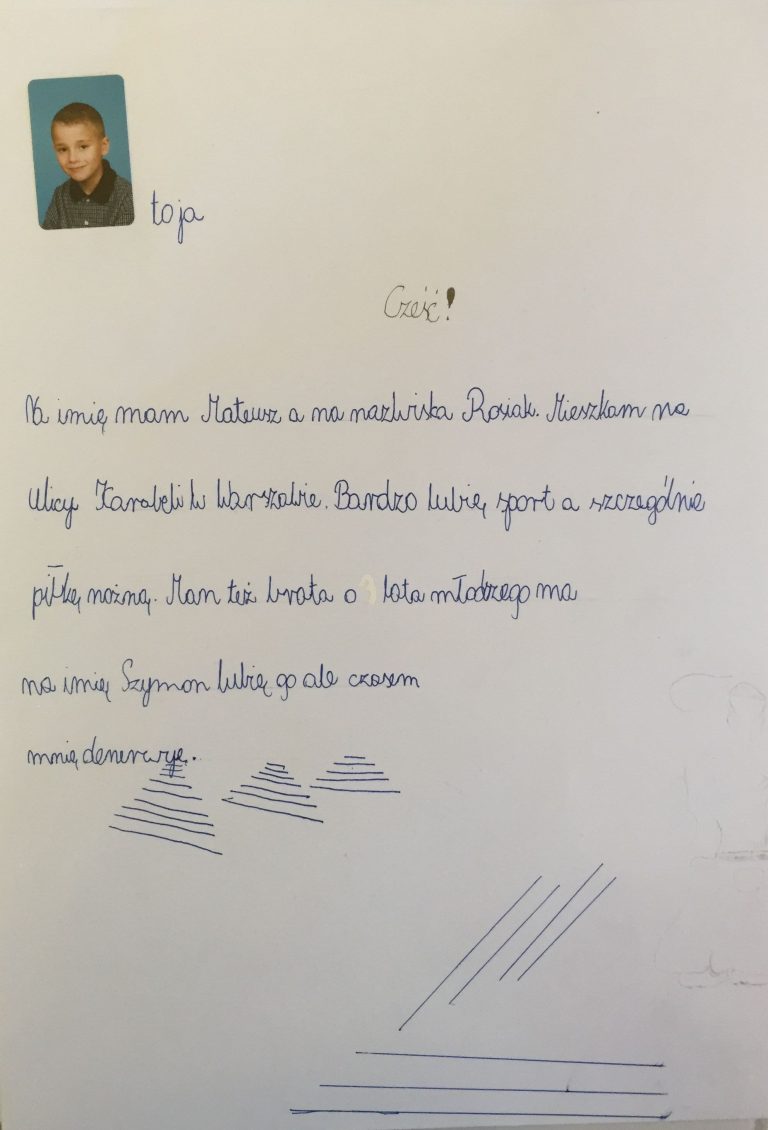 to ja
Cześć!
Na imię mam Mateusz a na nazwiska Rosiak. Mieszkam na
Ulicy Karabeli w Warszawie. Bardzo lubię sport a szczególnie
piłkę nożną. Mam też brata o lata młodzego ma
na imię Szymon lubię go ale czasem
mnię denerwuje.